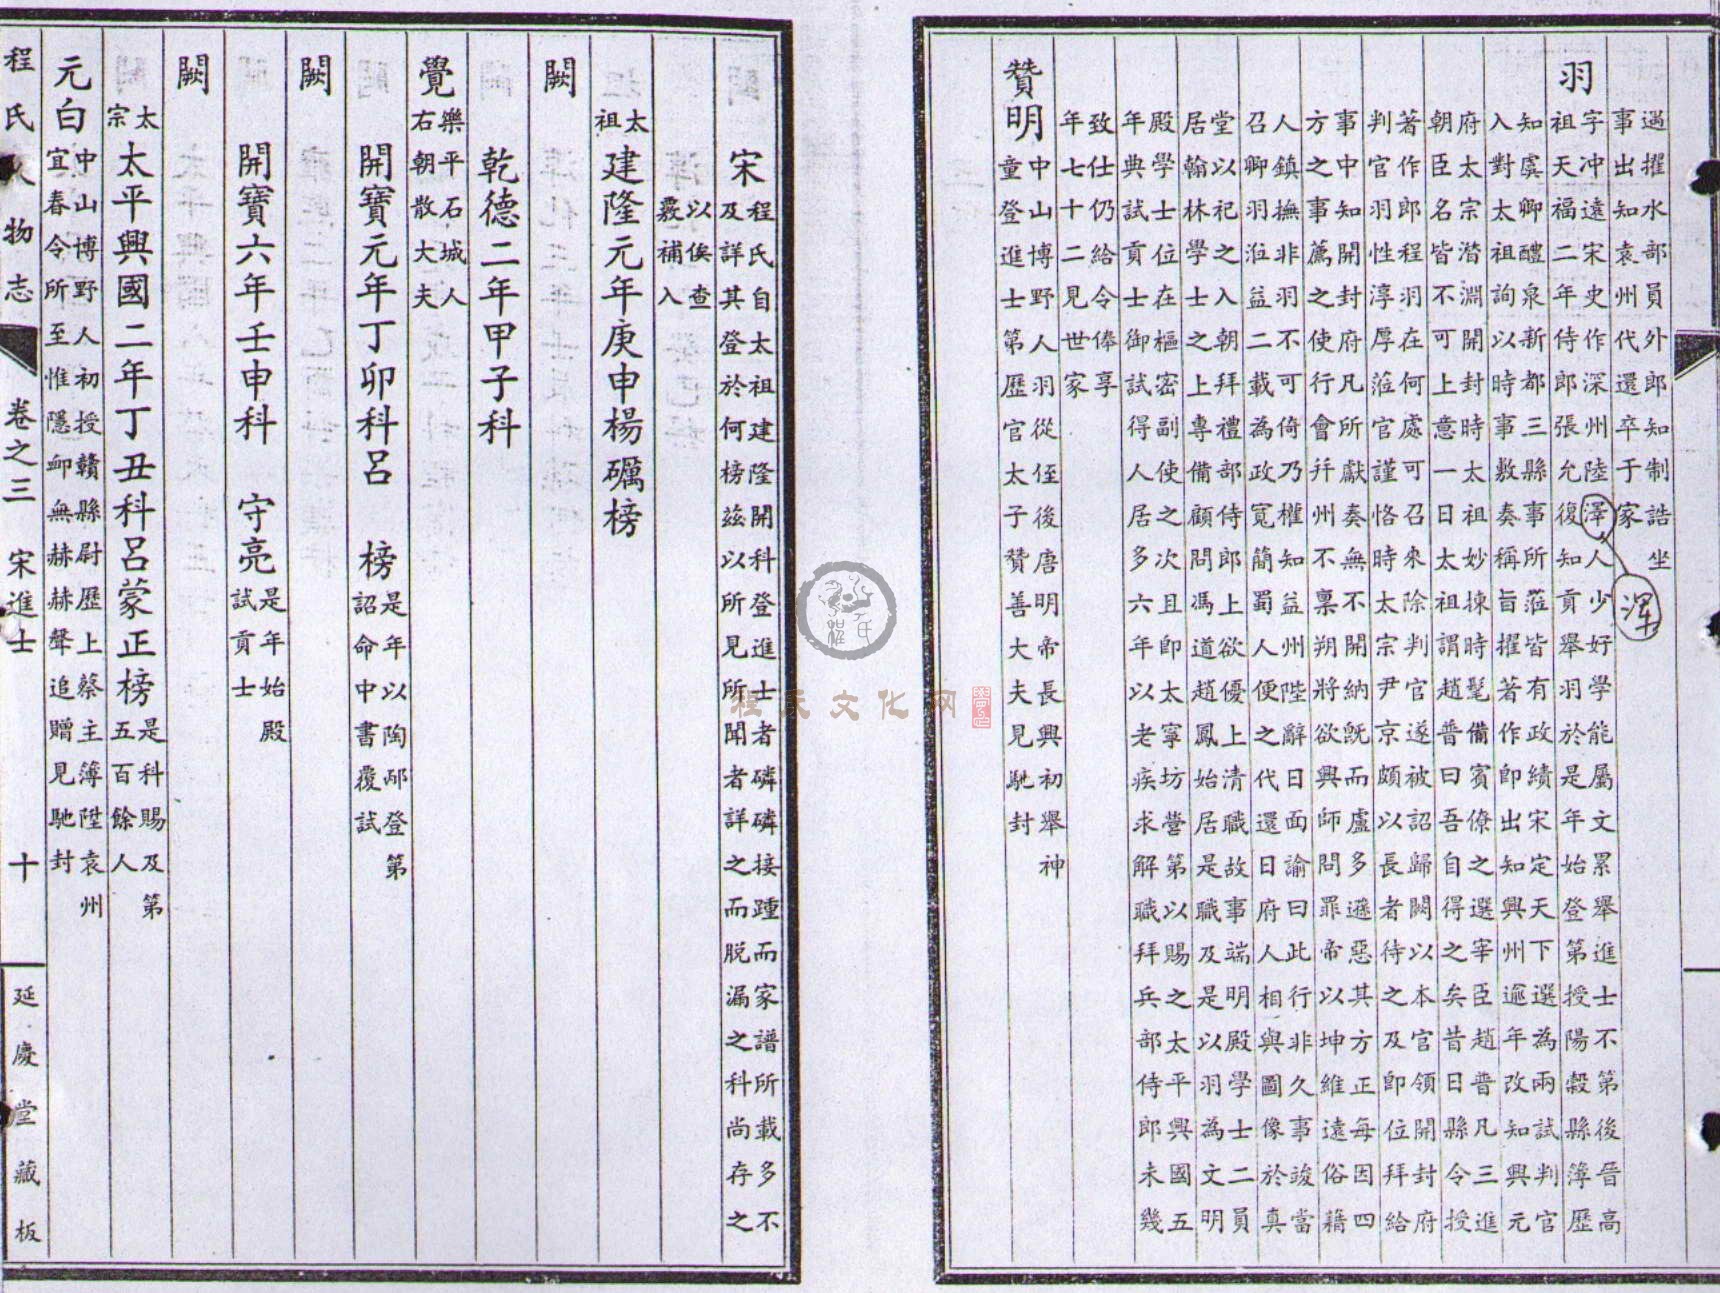 過擢水部員外郎知制誥坐
事出知袁州代還卒于家
渾
羽
字冲遠宋史作深州陸澤人少好學能屬文累舉進士不第後晉高
祖天福二年侍郎張允復知貢舉羽於是年始登第授陽穀縣簿歷
知虞卿醴泉新都三縣事所蒞皆有政績宋定天下選為兩試判官
入對太祖詢以時事敷奏稱旨擢著作郎出知興州逾年改知興元
府太宗潛淵開封時太祖妙揀時髦備賓僚之選宰臣趙普凡三進
朝臣名皆不可上意一日太祖謂趙普曰吾自得之矣昔日縣令授
著作郎程羽在何處可召來除判官遂被詔歸闕以本官領開封府
判官羽性淳厚蒞官謹恪時太宗尹京頗以長者待之及即位拜給
事中知開封府凡所獻奏無不開納既而盧多遜惡其方正每因四
方之事薦之使行會幷州不禀朔將欲興師問罪帝以坤維遠俗藉
人鎮撫非羽不可倚乃權知益州陛辭日面諭曰此行非久事竣當
召卿羽涖益二載為政寬簡蜀人便之代還日府人相與圖像於真
堂以祀之入朝拜禮部侍郎上欲優上清職故事端明殿學士二員
居翰林學士之上專備顧問馮道趙鳳始居是職及是以羽為文明
殿學士位在樞密副使之次且即太寧坊營第以賜之太平興國五
年典試貢士御試得人居多六年以老疾求解職拜兵部侍郎未幾
致仕仍給令俸享
年七十二見世家
贊明
中山博野人羽從侄後唐明帝長興初舉神
童登進士第歷官太子贊善大夫見馳封
宋
程氏自太祖建隆開科登進士者磷磷接踵而家譜所載多不
及詳其登於何榜茲以所見所聞者詳之而脱漏之科尚存之
以俟查
覈補入
太祖
建隆元年庚申楊礪榜
闕
乾德二年甲子科
覺
樂平石城人
右朝散大夫
開寶元年丁卯科呂 榜
是年以陶邴登第
詔命中書覆試
闕
開寶六年壬申科 守亮
是年始殿
試貢士
闕
太宗
太平興國二年丁丑科呂蒙正榜
是科賜及第
五百餘人
元白
中山博野人初授贛縣尉歷上蔡主簿陞袁州
宜春令所至惟隱卹無赫赫聲追贈見馳封
程氏人物志 卷之三 宋進士 十 延慶堂藏板
程氏文化网